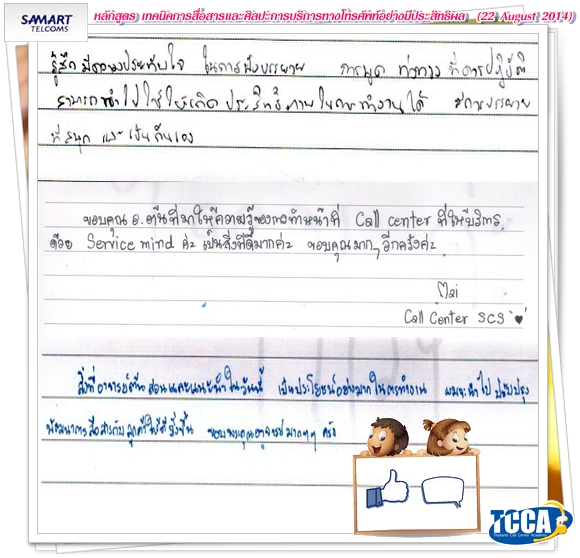 SAMART
TELCOMS
หลักสูตร เทคนิคการสื่อสารและศิลปะการบริการทางโทรศัพท์อย่างมีประสิทธิผล (22 August 2014)
รู้สึก มีความประทับใจ ในการฟังบรรยาย การพูด ท่าทาง ที่การปฏิบัติ
สามารถนำไปใช้ให้เกิดประสิทธิภาพในการทำงานได้ บรรยาย
ที่สนุก และเป็นกันเอง
ขอบคุณ อ.ตื่นที่มาให้ความรู้ของการทำหน้าที่ Call center ที่ให้บริการ
ด้วย Service mind ค่ะ เป็นสิ่งที่ดีมากค่ะ ขอบคุณมากๆ อีกครั้งค่ะ
Mai
Call Center SCS
สิ่งที่อาจารย์ สอนและแนะนำในวันนี้ เป็นประโยชน์อย่างมากในการทำงาน ผมจะนำไปปรับปรุง
พัฒนาการสื่อสารกับลูกค้าให้ดียิ่งขึ้น ขอบพระคุณอาจารย์มากๆๆ ครับ
TCCA
Thailand Call Center Academy